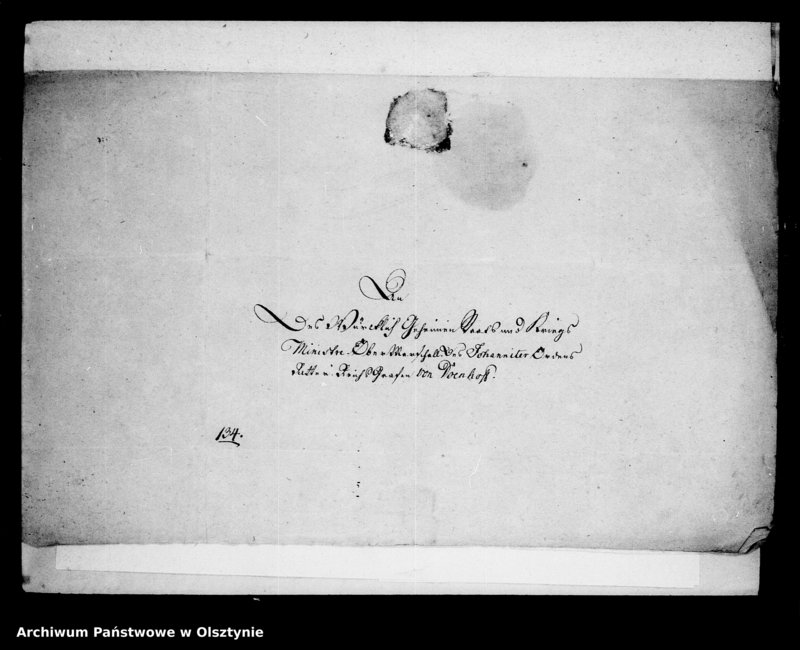 An
Des Würcklich Geheimen Staats und Kriegs
Ministre. Ober Marschall. des Johanniter Ordens
Ritter. Reichs Grafen von Doenhoff.
134.
Archiwum Państwowe w Olsztynie